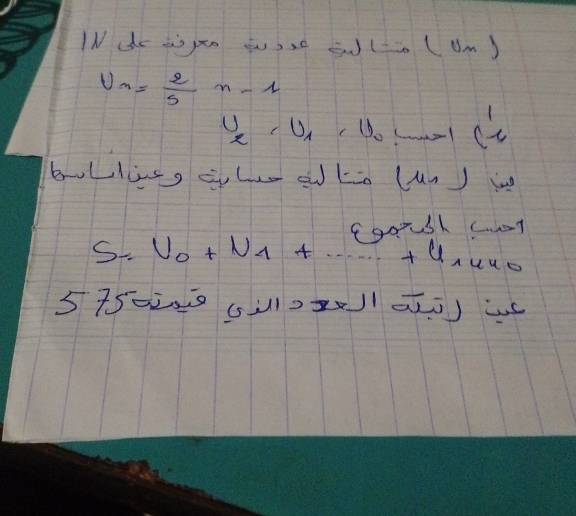 (Un) متتالية عددية معرفة على IN
Un = 2/5 n - 1
1) احسب U0 ، U1 ، U2
بين (un) متتالية حسابية وعين أساسها
احسب المجموع
S = U0 + U1 + ...... + U1440
عين رتبة العدد الذي قيمته 575